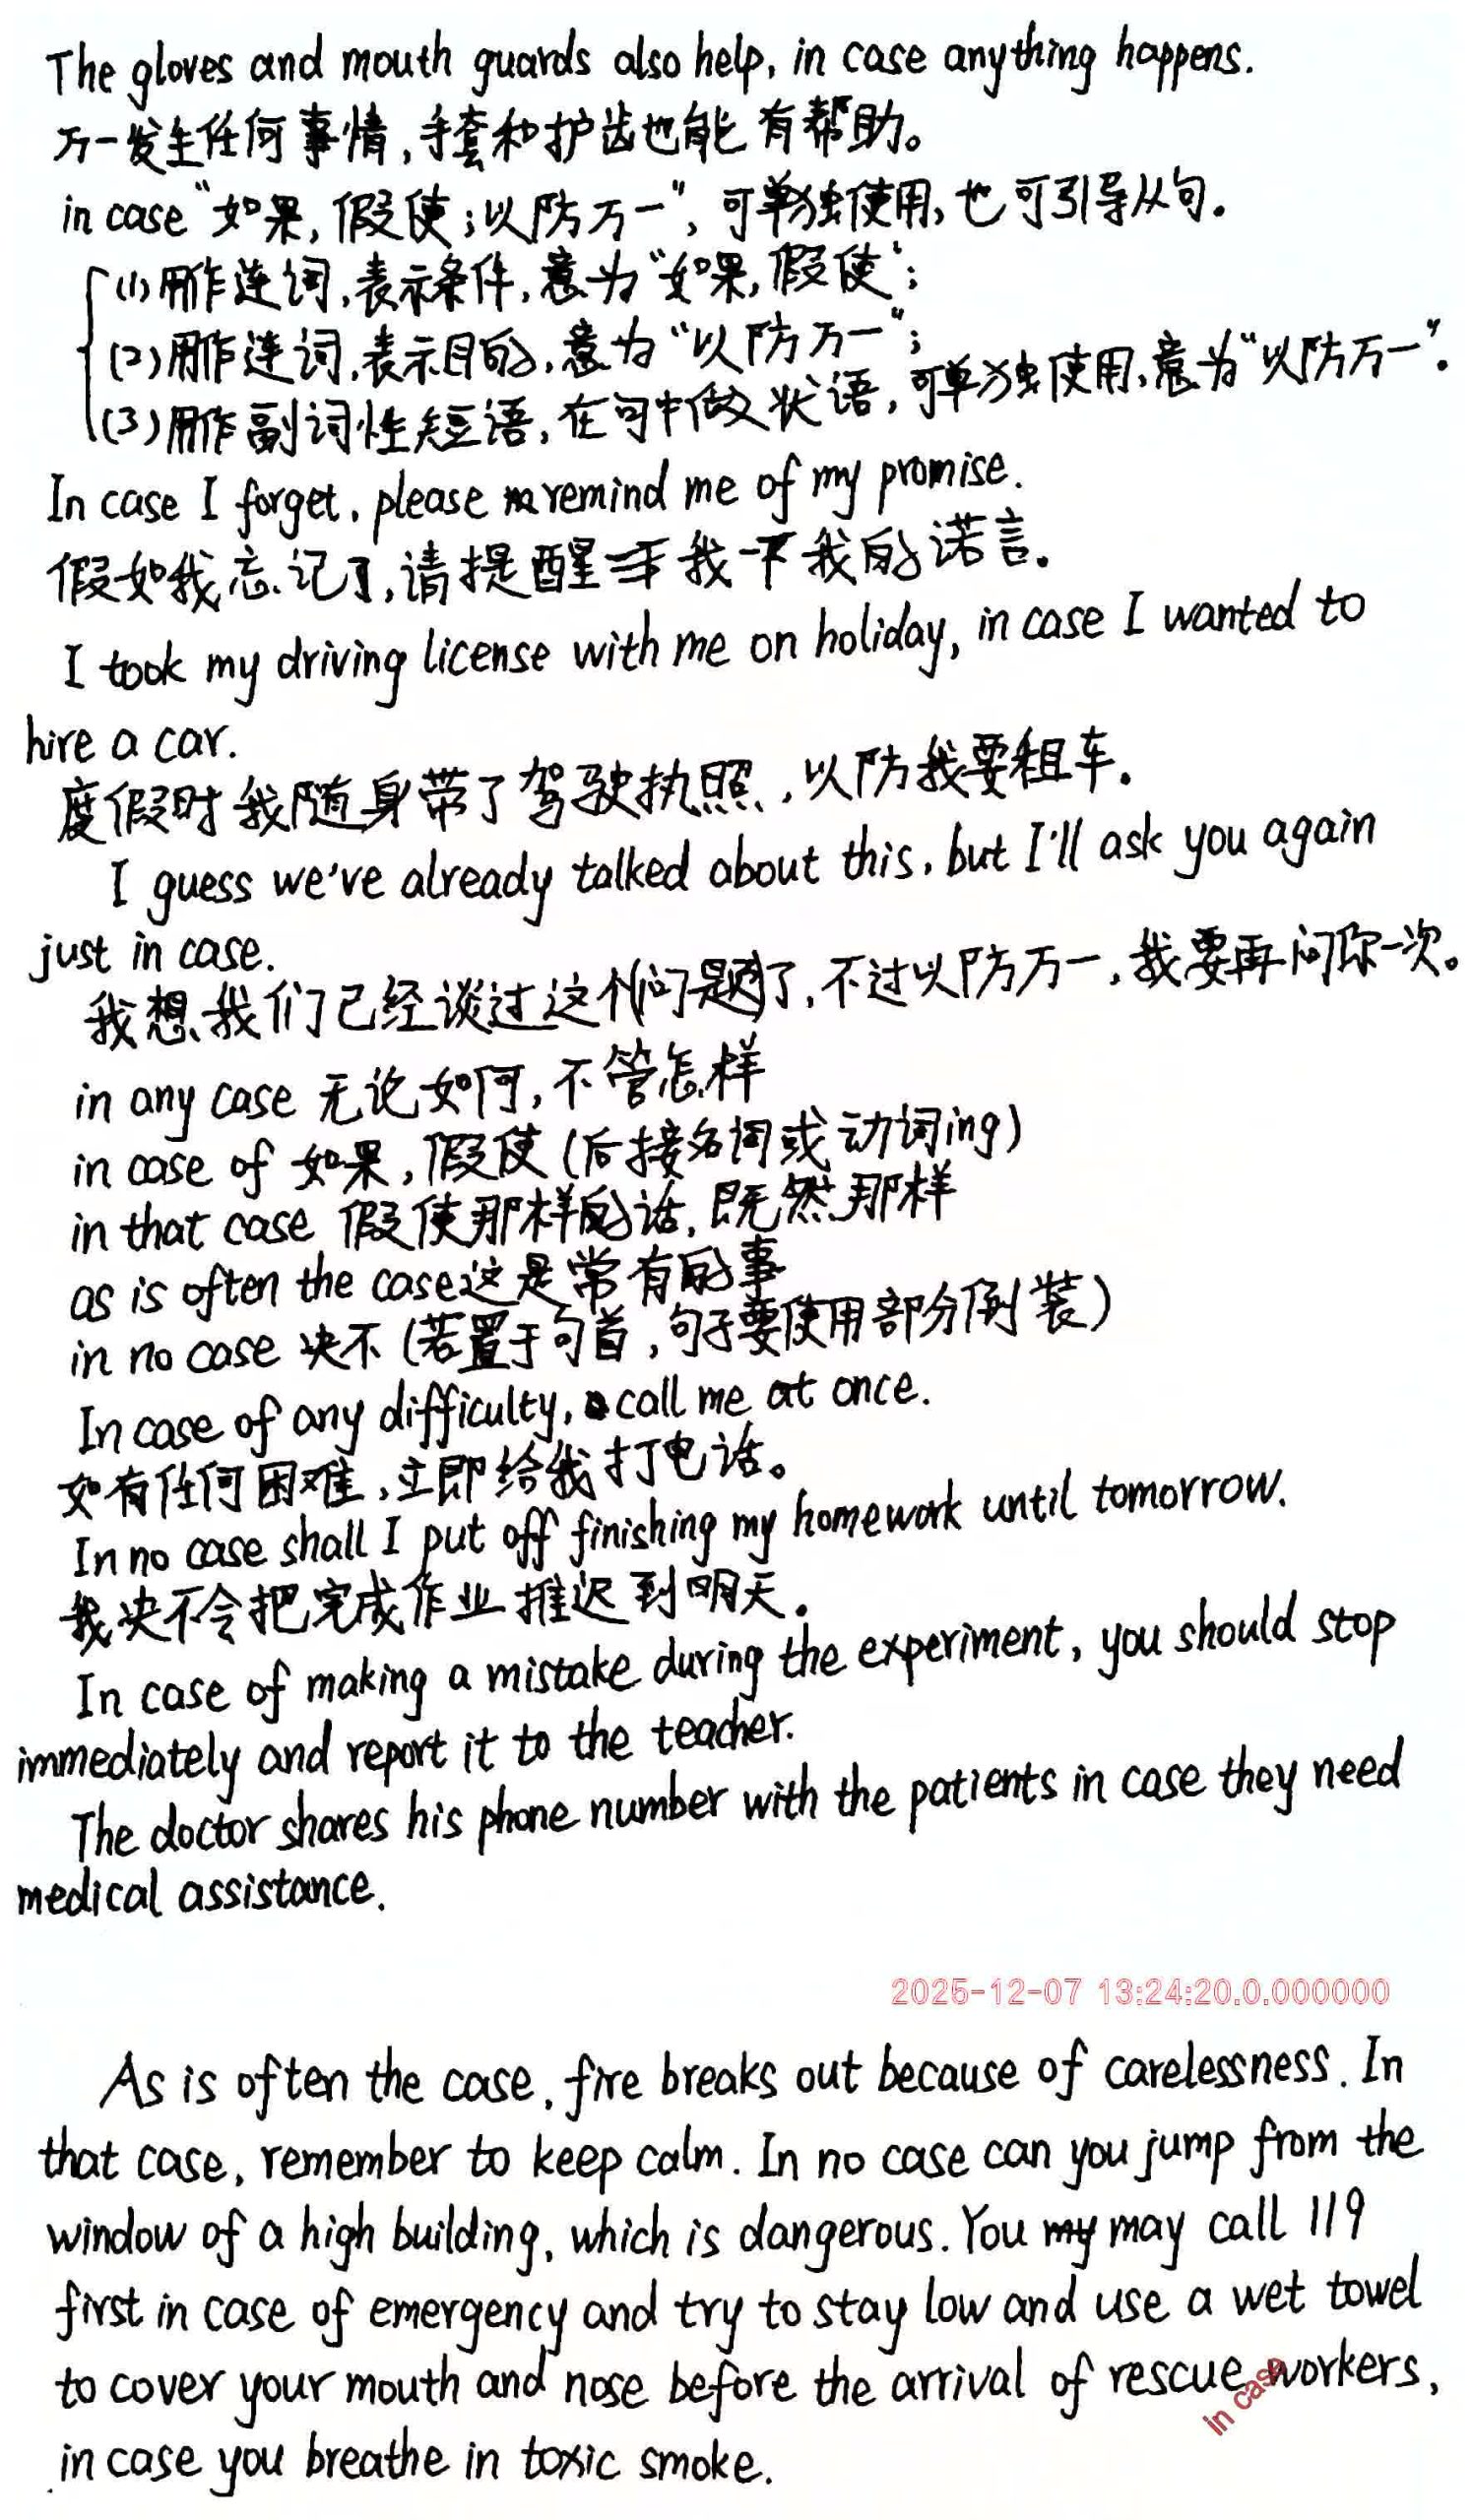 The gloves and mouth guards also help, in case anything happens.
万一发生任何事情,手套和护齿也能有帮助。
in case “如果,假使;以防万一”,可单独使用,也可引导从句.
(1)用作连词,表示条件,意为“如果,假使”;
(2)用作连词,表示目的,意为“以防万一”;
(3)用作副词性短语,在句中做状语,可单独使用,意为“以防万一”.
In case I forget, please remind me of my promise.
假如我忘记了,请提醒我一下我的诺言.
I took my driving license with me on holiday, in case I wanted to
hire a car.
度假时我随身带了驾驶执照,以防我要租车.
I guess we've already talked about this, but I'll ask you again
just in case.
我想我们已经谈过这个问题了,不过以防万一,我要再问你一次。
in any case 无论如何,不管怎样
in case of 如果,假使(后接名词或动词ing)
in that case 假使那样的话,既然那样
as is often the case 这是常有的事
in no case 决不(若置于句首,句子要使用部分倒装)
In case of any difficulty, call me at once.
如有任何困难,立即给我打电话。
In no case shall I put off finishing my homework until tomorrow.
我决不会把完成作业推迟到明天.
In case of making a mistake during the experiment, you should stop
immediately and report it to the teacher.
The doctor shares his phone number with the patients in case they need
medical assistance.
2025-12-07 13:24:20.0.000000
As is often the case, fire breaks out because of carelessness. In
that case, remember to keep calm. In no case can you jump from the
window of a high building, which is dangerous. You may call 119
first in case of emergency and try to stay low and use a wet towel
to cover your mouth and nose before the arrival of rescue workers,
in case you breathe in toxic smoke.
in case